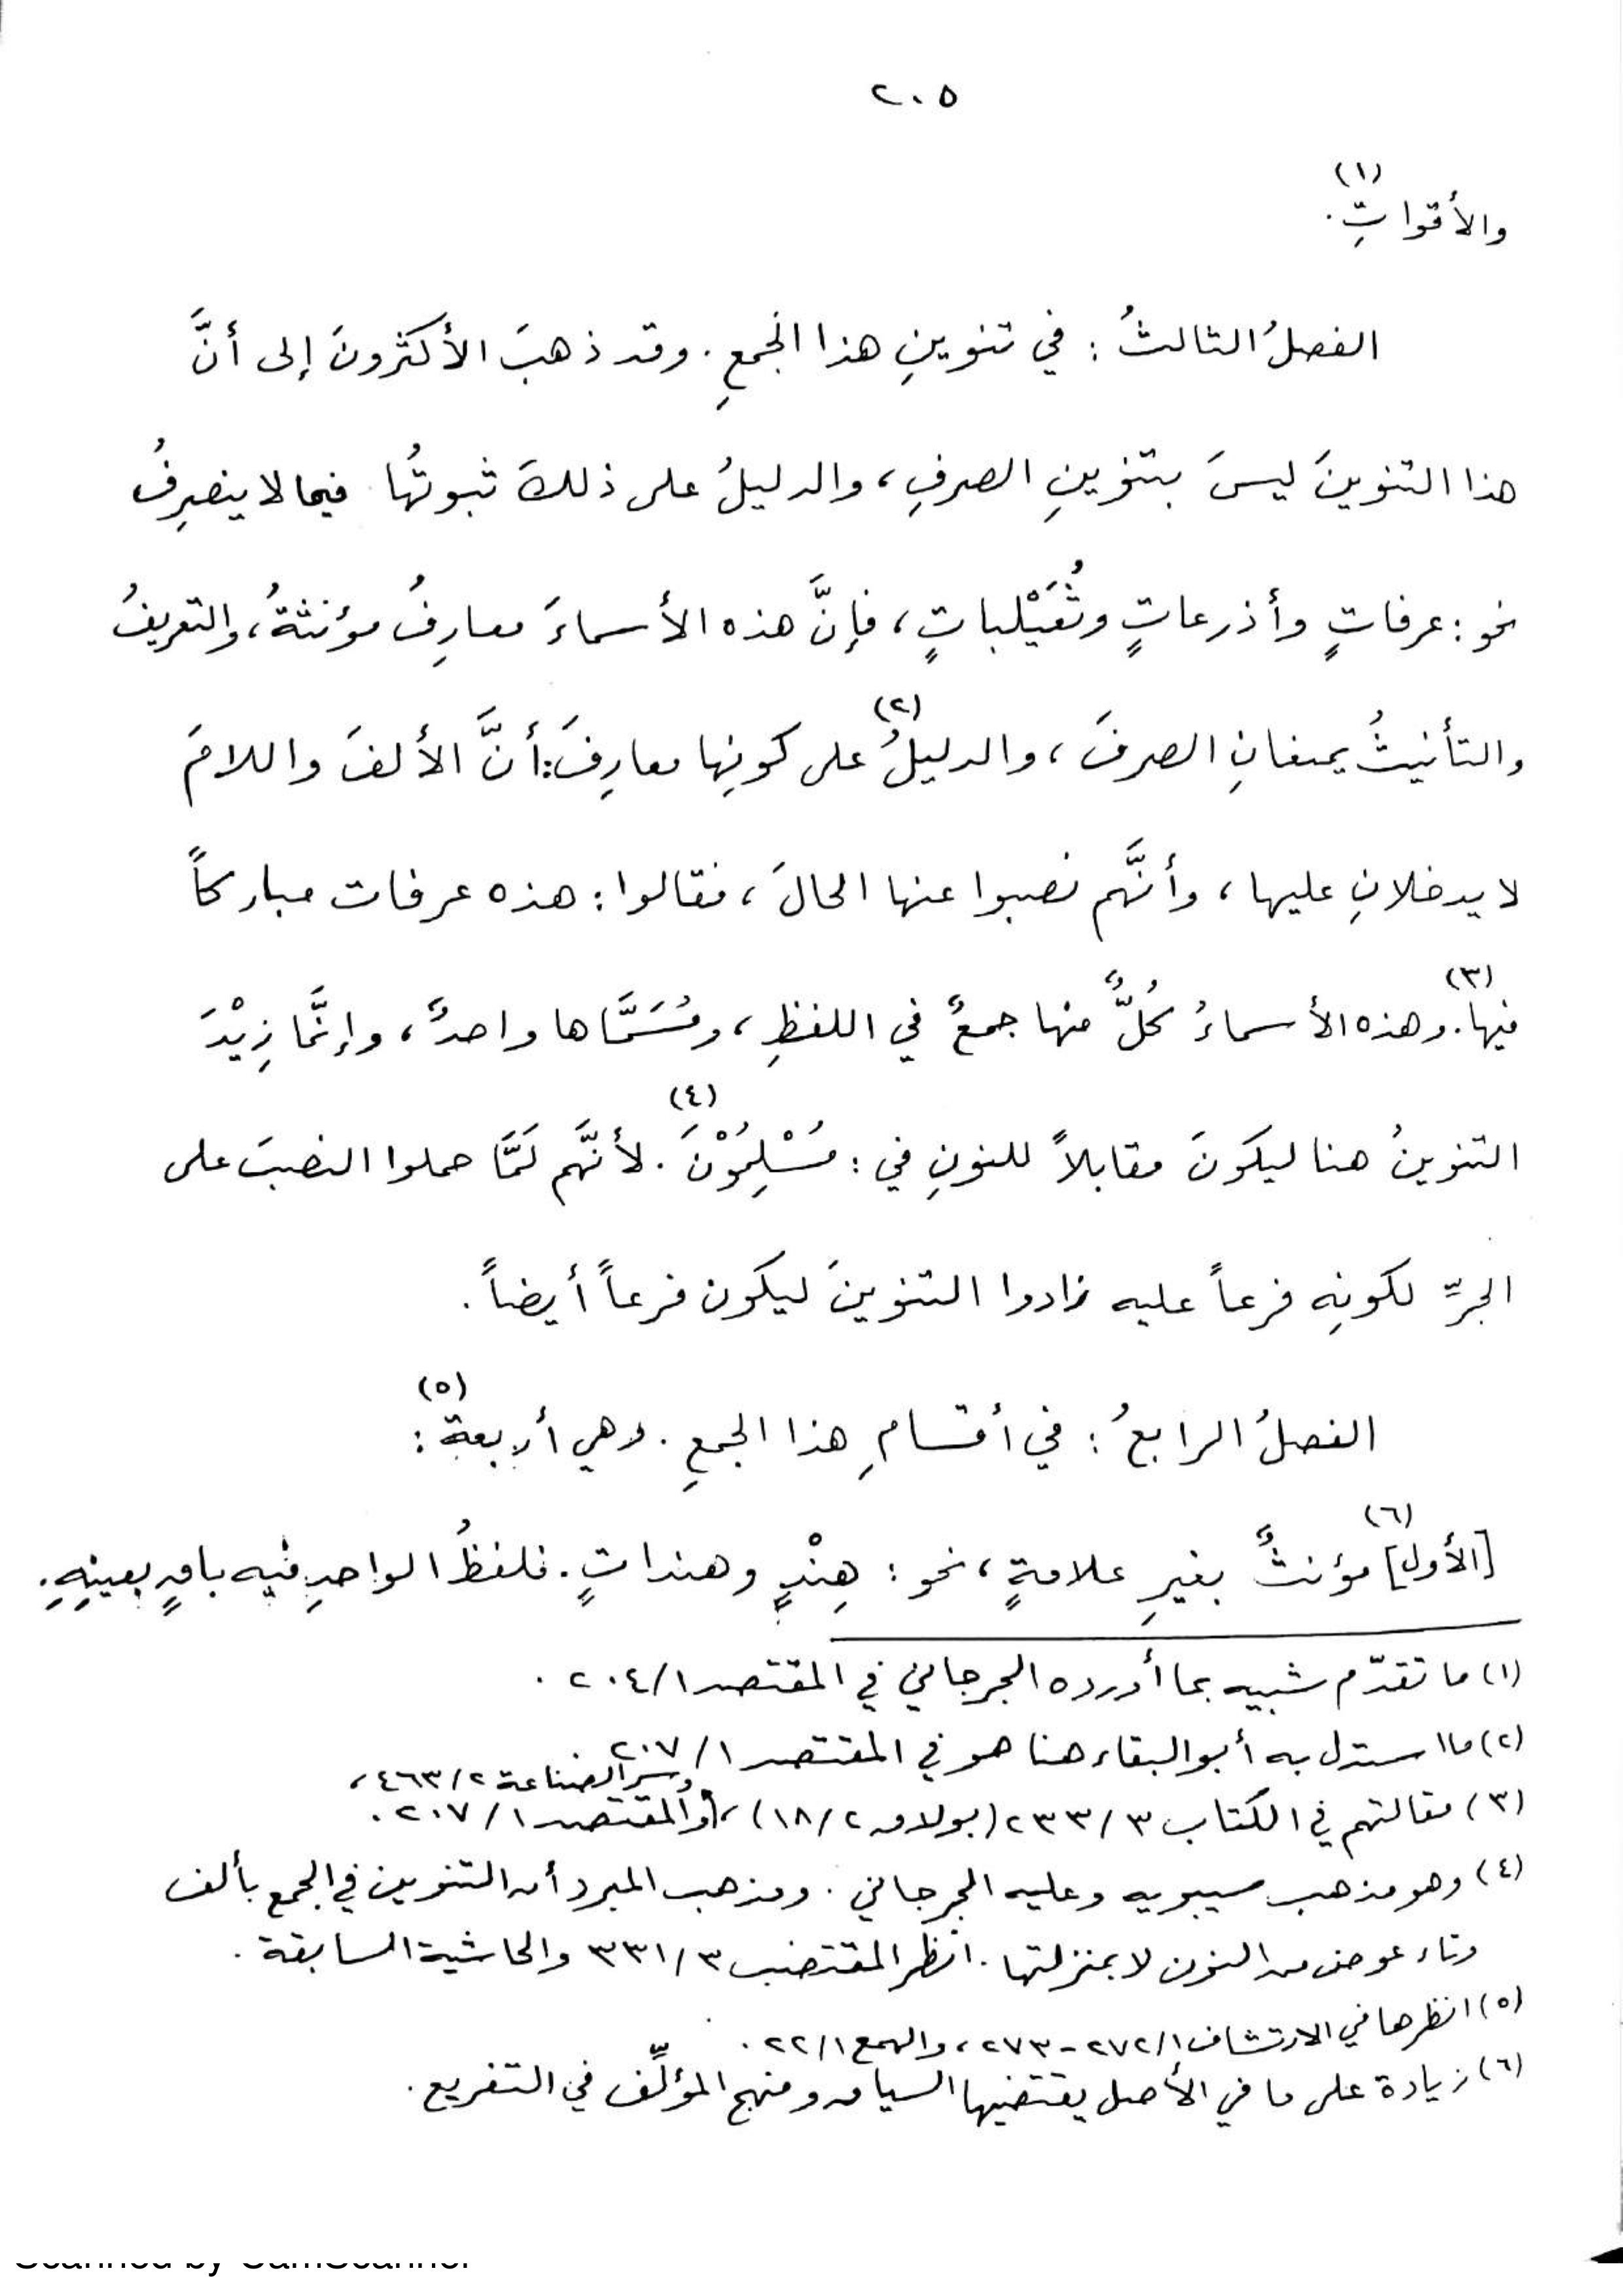 ٢٠٥
والأقواتِ(١).
الفصلُ الثالثُ : في تنوينِ هذا الجمعِ . وقد ذهبَ الأكثرونَ إلى أنَّ
هذا التنوينَ ليسَ بتنوينِ الصرفِ، والدليلُ على ذلكَ ثبوتُها فيما لا ينصرِفُ
نحو : عرفاتٍ وأذرعاتٍ وثُعَيْلباتٍ، فإنَّ هذه الأسماءَ معارِفُ مؤنثةُ، والتعريفُ
والتأنيثُ يمنعانِ الصرفَ، والدليلُ(٢) على كونِها معارِفَ: أنَّ الألفَ واللامَ
لا يدخلانِ عليها، وأنَّهم نصبوا عنها الحالَ، فقالوا : هذه عرفات مباركاً
فيها(٣). وهذه الأسماءُ كُلٌّ منها جمعٌ في اللفظِ، ومُسَمَّاها واحدٌ، وإنَّما زِيْدَ
التنوينُ هنا ليكونَ مقابلاً للنونِ في : مُسْلِمُوْنَ(٤). لأنَّهم لَمَّا حملوا النصبَ على
الجرِّ لكونِه فرعاً عليه زادوا التنوينَ ليكون فرعاً أيضاً .
الفصلُ الرابعُ : في أقسامِ هذا الجمعِ . وهي أربعة(٥) :
[الأول](٦) مؤنثٌ بغيرِ علامةٍ، نحو : هِنْدٍ وهنداتٍ. فلفظُ الواحدِ فيه باقٍ بعينِهِ.
(١) ما تقدّم شبيه بما أورده الجرجاني في المقتصد ١/٢٠٤ .
(٢) ما استدل به أبو البقاء هنا هو في المقتصد ١/٢٠٧
وسر الصناعة ٢/٤٦٣،
(٣) مقالتهم في الكتاب ٣/٢٣٣ (بولاق ٢/١٨)، والمقتصد ١/٢٠٧ .
(٤) وهو مذهب سيبويه وعليه الجرجاني . ومذهب المبرد أن التنوين في الجمع بألف
وتاء عوض من النون لا بمنزلتها . انظر المقتضب ٣/٣٣١ والحاشية السابقة .
(٥) انظرها في الارتشاف ١/٢٧٢-٢٧٣، والهمع ١/٢٢ .
(٦) زيادة على ما في الأصل يقتضيها السياق ومنهج المؤلِّف في التفريع .
Scanned by CamScanner